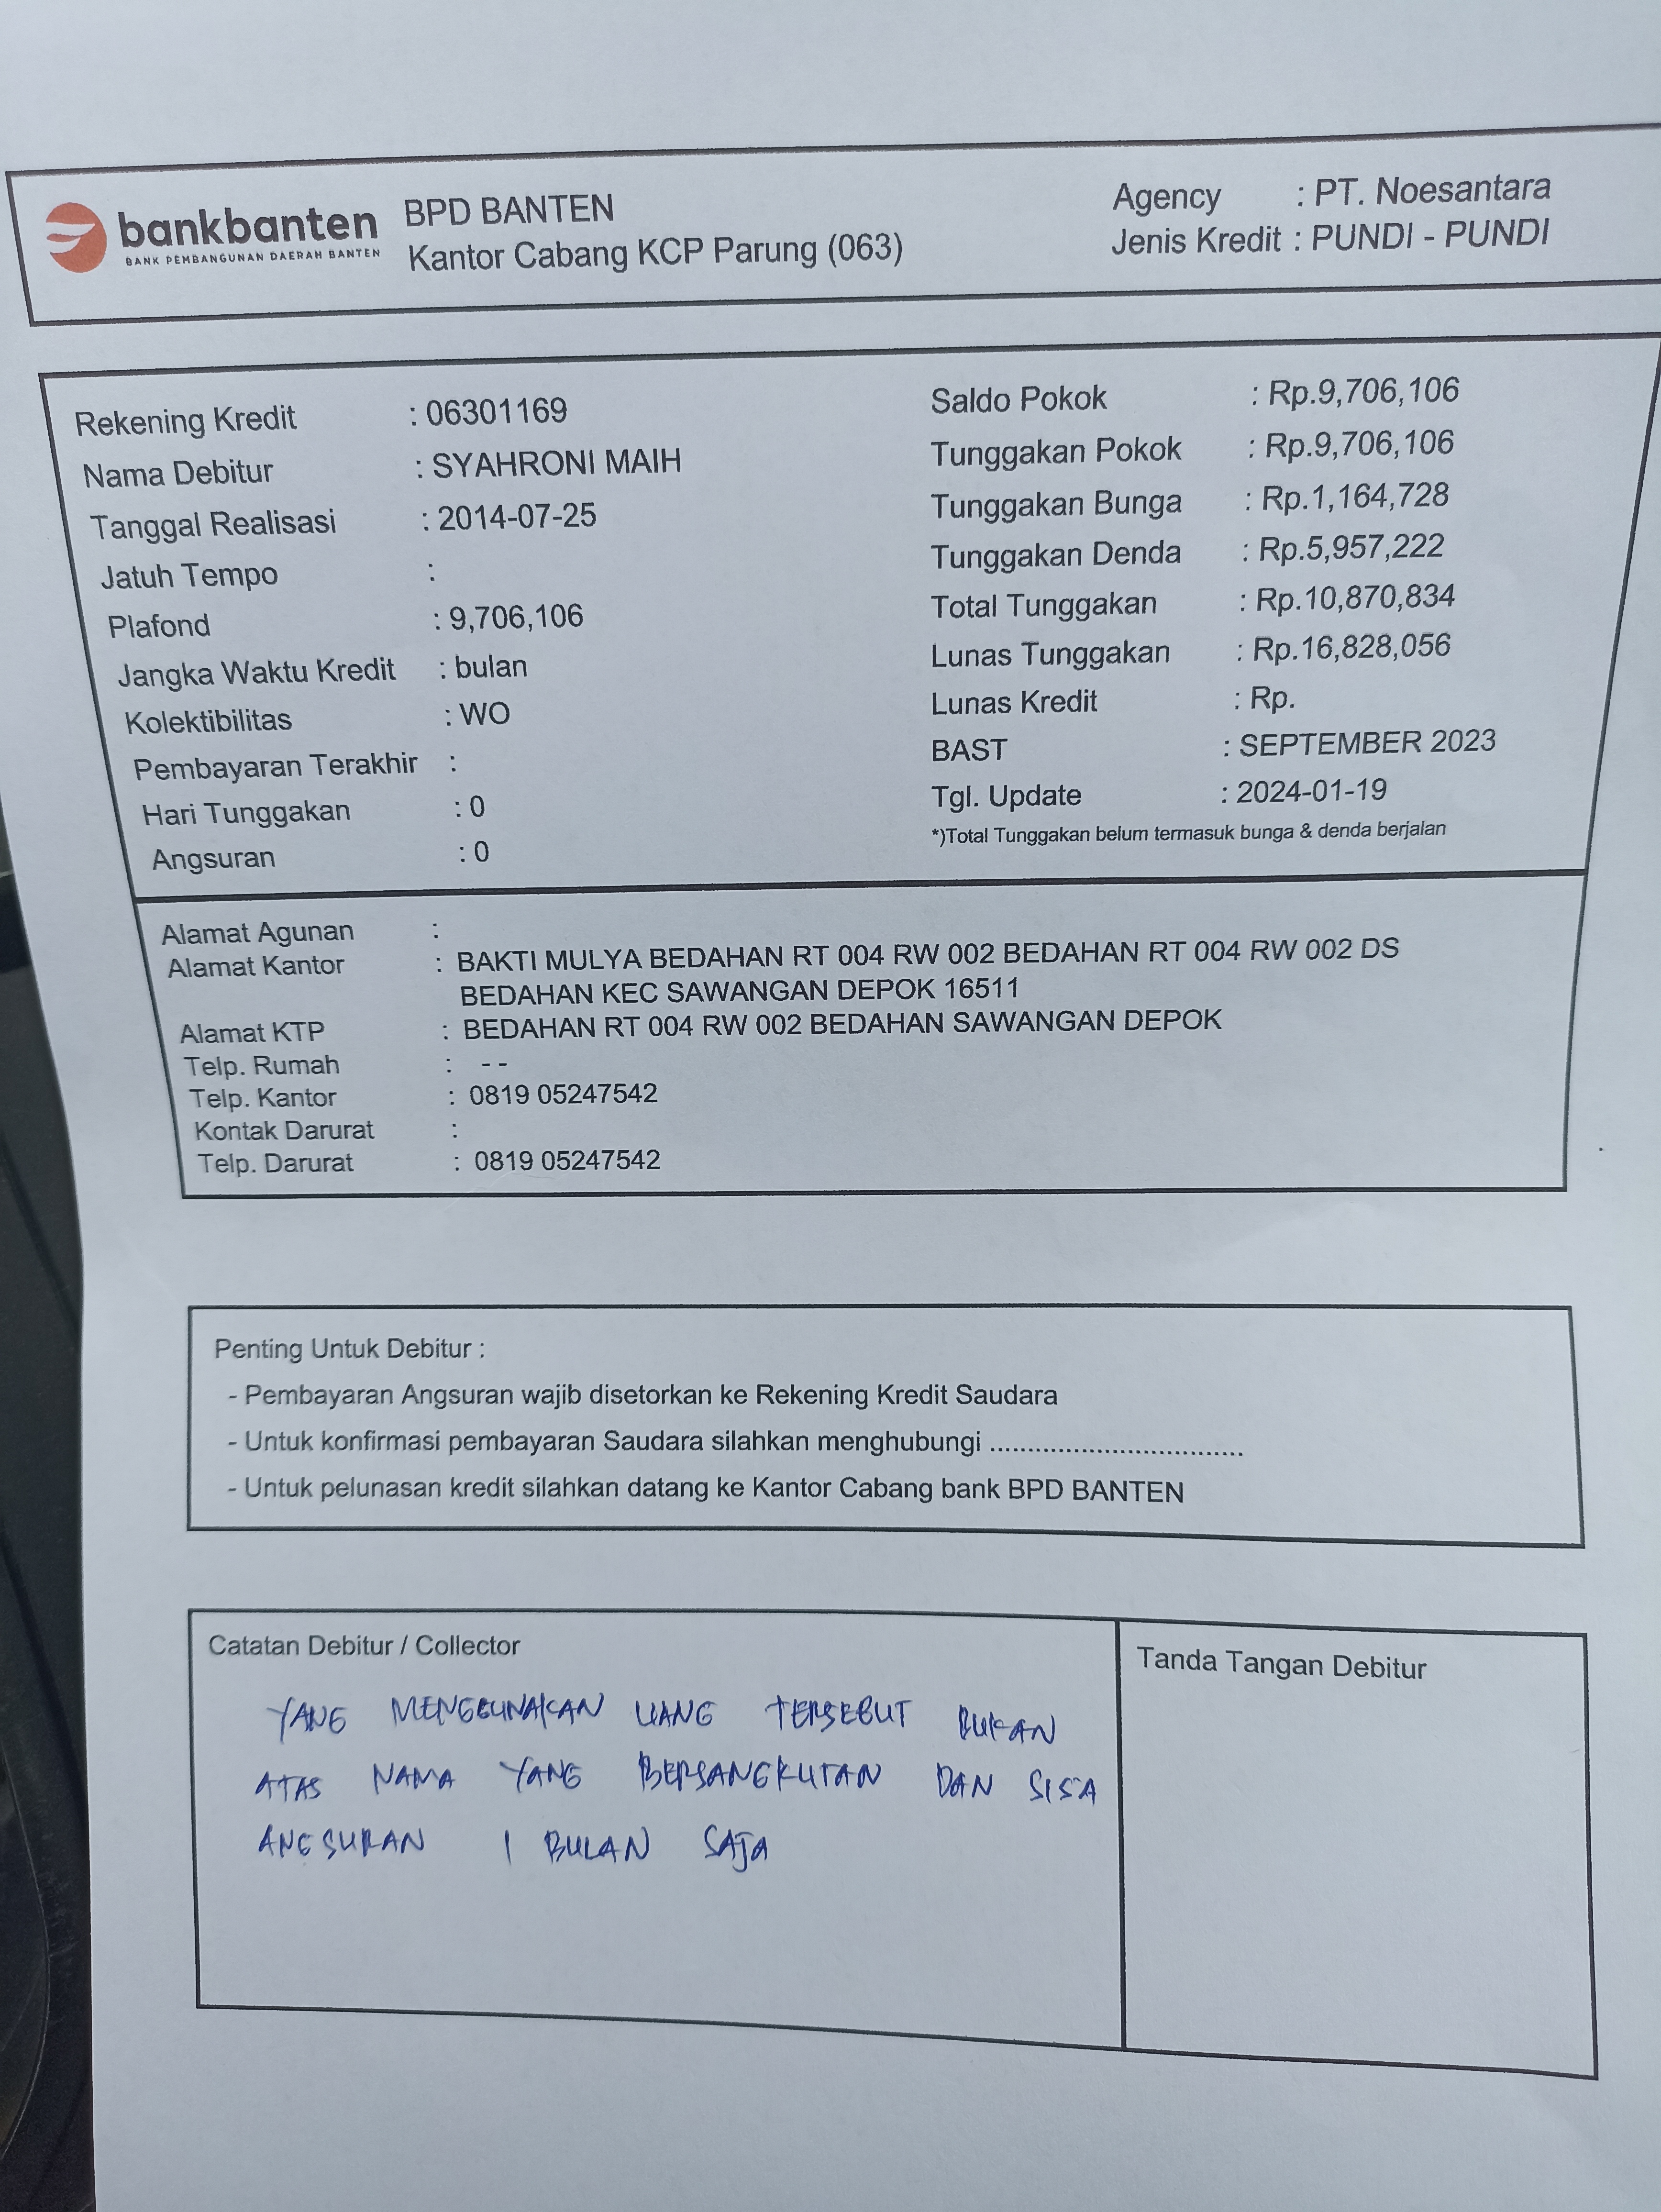 bankbanten
BANK PEMBANGUNAN DAERAH BANTEN
BPD BANTEN
Kantor Cabang KCP Parung (063)
Agency : PT. Noesantara
Jenis Kredit : PUNDI - PUNDI
Rekening Kredit : 06301169
Nama Debitur : SYAHRONI MAIH
Tanggal Realisasi : 2014-07-25
Jatuh Tempo :
Plafond : 9,706,106
Jangka Waktu Kredit : bulan
Kolektibilitas : WO
Pembayaran Terakhir :
Hari Tunggakan : 0
Angsuran : 0
Saldo Pokok : Rp.9,706,106
Tunggakan Pokok : Rp.9,706,106
Tunggakan Bunga : Rp.1,164,728
Tunggakan Denda : Rp.5,957,222
Total Tunggakan : Rp.10,870,834
Lunas Tunggakan : Rp.16,828,056
Lunas Kredit : Rp.
BAST : SEPTEMBER 2023
Tgl. Update : 2024-01-19
*)Total Tunggakan belum termasuk bunga & denda berjalan
Alamat Agunan :
Alamat Kantor : BAKTI MULYA BEDAHAN RT 004 RW 002 BEDAHAN RT 004 RW 002 DS
BEDAHAN KEC SAWANGAN DEPOK 16511
Alamat KTP : BEDAHAN RT 004 RW 002 BEDAHAN SAWANGAN DEPOK
Telp. Rumah : - -
Telp. Kantor : 0819 05247542
Kontak Darurat :
Telp. Darurat : 0819 05247542
Penting Untuk Debitur :
- Pembayaran Angsuran wajib disetorkan ke Rekening Kredit Saudara
- Untuk konfirmasi pembayaran Saudara silahkan menghubungi .................................
- Untuk pelunasan kredit silahkan datang ke Kantor Cabang bank BPD BANTEN
Catatan Debitur / Collector
YANG MENGGUNAKAN UANG TERSEBUT BUKAN
ATAS NAMA YANG BERSANGKUTAN DAN SISA
ANGSURAN 1 BULAN SAJA
Tanda Tangan Debitur